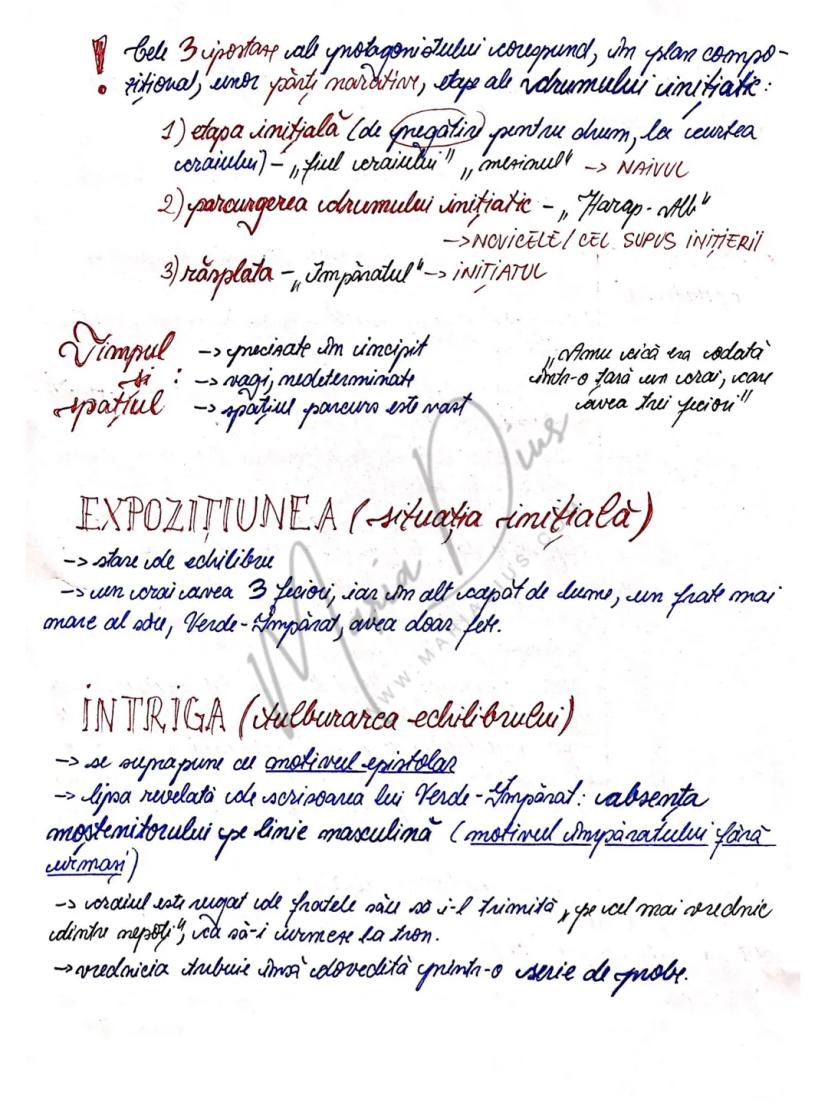 ! Cele 3 ipostaze ale protagonistului corespund, în plan compo-
zițional, unor părți narative, etape ale drumului inițiatic:
1) etapa inițială (de pregătire pentru drum, la curtea
craiului) - „fiul craiului" „mezinul" -> NAIVUL
2) parcurgerea drumului inițiatic - „Harap-Alb"
-> NOVICELE / CEL SUPUS INIȚIERII
3) răsplata - „Împăratul" -> INIȚIATUL
Timpul și spațiul :
-> precizate în incipit
-> vagi, nedeterminate
-> spațiul parcurs este vast
„Amu cică era odată
într-o țară un crai, care
avea trei feciori"
EXPOZIȚIUNEA (situația inițială)
-> stare de echilibru
-> un crai avea 3 feciori, iar în alt capăt de lume, un frate mai
mare al său, Verde-Împărat, avea doar fete.
INTRIGA (tulburarea echilibrului)
-> se suprapune cu motivul epistolar
-> lipsa revelată de scrisoarea lui Verde-Împărat: absența
moștenitorului pe linie masculină (motivul împăratului fără
urmași)
-> craiul este rugat de fratele său să i-l trimită „pe cel mai vrednic
dintre nepoți", ca să-i urmeze la tron.
-> vrednicia trebuie însă dovedită printr-o serie de probe.
Maria Dius
WWW.MARIADIUS.C